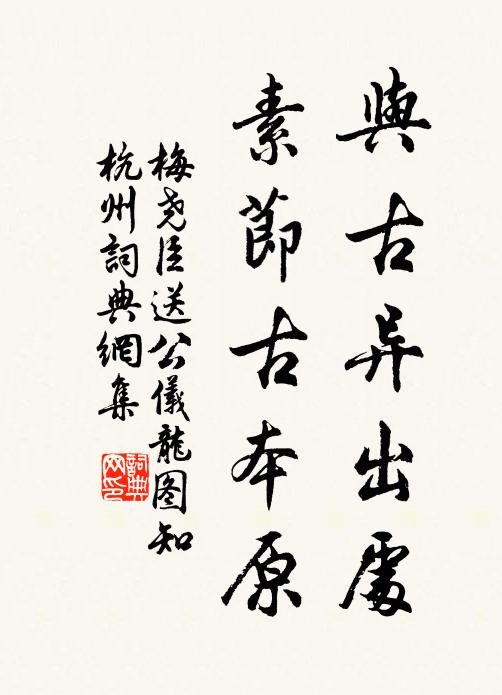 與古异出處
素節古本原
梅尧臣送公儀龍图知
杭州詞典網集
詞典网印